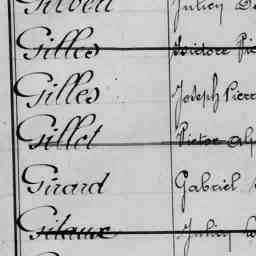 Gilles Isidore
Gilles Joseph Pierre
Gillet Victor
Girard Gabriel
Gitaux Julien